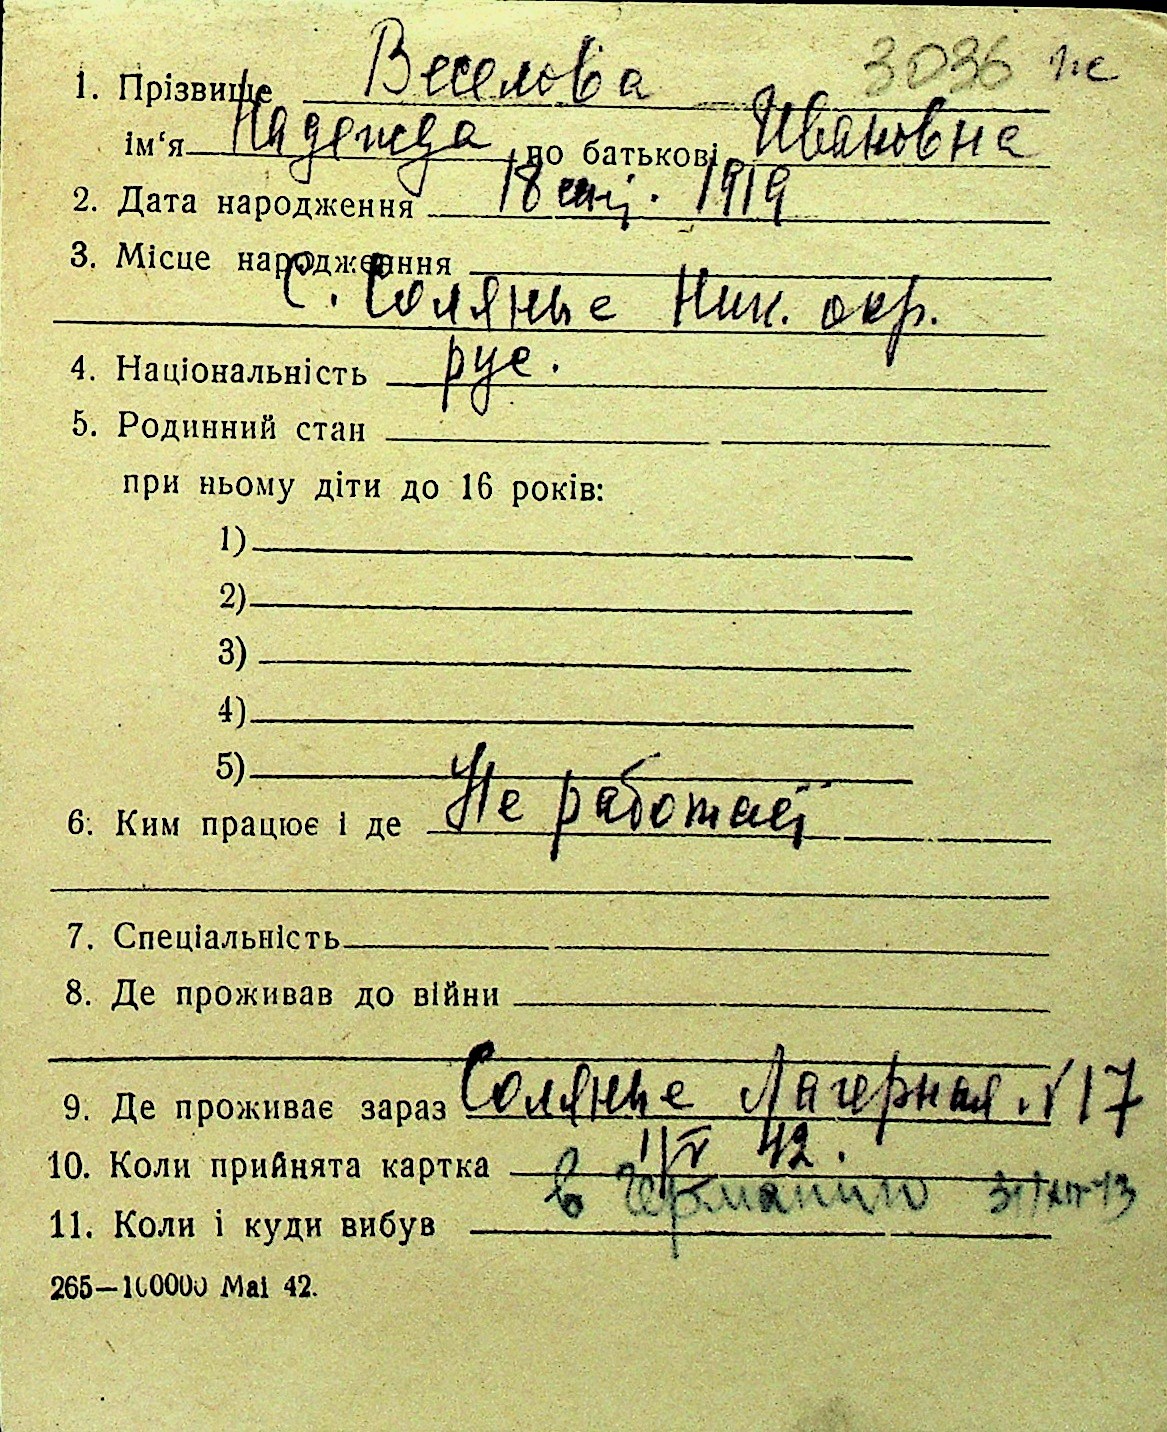 3036
1. Прізвище Веселова
ім'я Надежда по батькові Ивановна
2. Дата народження 18 1919
3. Місце народження
С. Солянье Ник. окр.
4. Національність рус.
5. Родинний стан
при ньому діти до 16 років:
1)
2)
3)
4)
5)
6. Ким працює і де Не работает
7. Спеціальність
8. Де проживав до війни
9. Де проживає зараз Солянье Лагерная. № 17
10. Коли прийнята картка 1/V 42.
в Германию
11. Коли і куди вибув
265—100000 Mai 42.